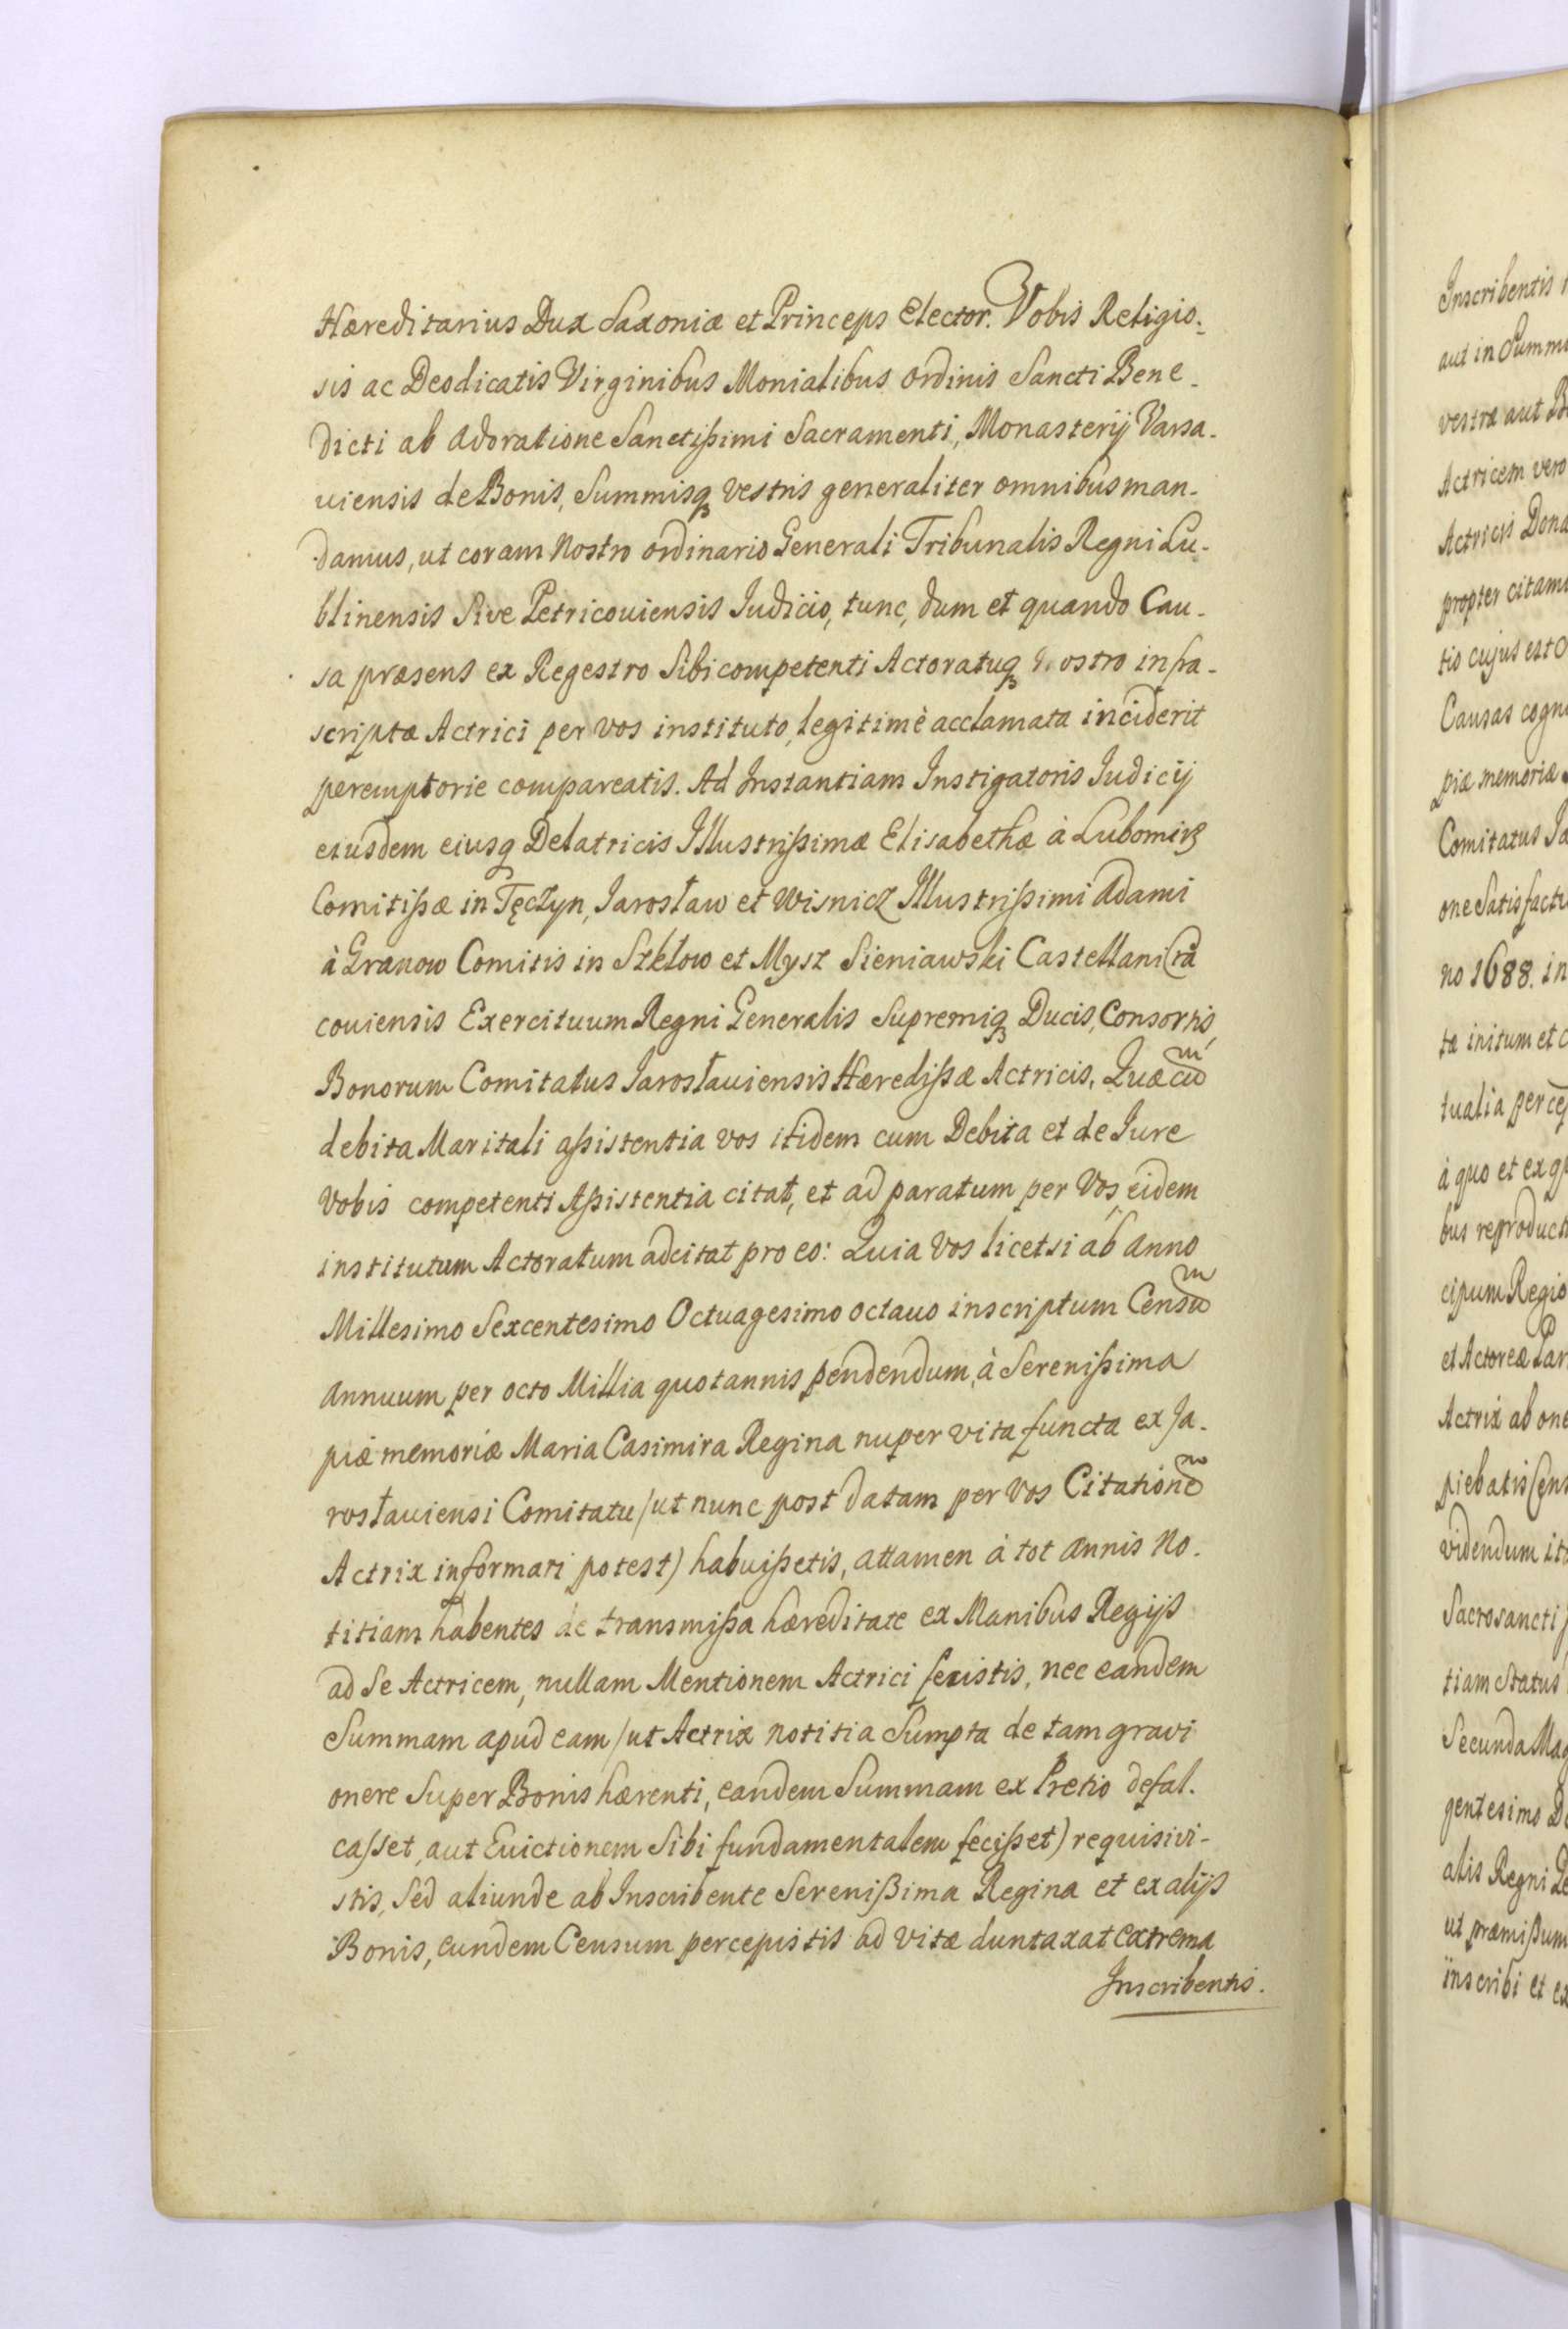 Hæreditarius Dux Saxoniæ et Princeps Elector. Vobis Religio-
sis ac Deodicatis Virginibus Monialibus Ordinis Sancti Bene-
dicti ab Adoratione Sanctißimi Sacramenti, Monasterij Varsa-
uiensis de Bonis, Summisq vestris generaliter omnibus man-
damus, ut coram Nostro ordinario Generali Tribunalis Regni Lu-
blinensis Sive Petricouiensis Iudicio, tunc, dum et quando Cau-
sa præsens ex Regestro Sibi competenti Actoratuq nostro infra-
scriptæ Actrici per vos instituto, legitimè acclamata inciderit
peremptorie compareatis. Ad Instantiam Instigatoris Iudicij
eiusdem eiusq Delatricis Illustrißimæ Elisabethæ à Lubomirz
Comitißæ in Tęczyn, Iarosław et Wisnicz Illustrißimi Adami
à Granow Comitis in Szkłow et Mysz Sieniawski Castellani Cra
couiensis Exercituum Regni Generalis Supremiq Ducis, Consortis,
Bonorum Comitatus Iarosłauiensis Hæredißæ Actricis, Quæ cum
debita Maritali aßistentia vos itidem cum Debita et de Iure
Vobis competenti Aßistentia citat, et ad paratum per Vos eidem
institutum Actoratum adcitat pro eo: Quia Vos licet si ab Anno
Millesimo Sexcentesimo Octuagesimo octauo inscriptum Censum
Annuum per octo Millia quotannis pendendum, à Serenißima
piæ memoriæ Maria Casimira Regina nuper vita functa ex Ja-
rosłauiensi Comitatu /ut nunc post datam per Vos Citationem
Actrix informari potest) habuißetis, attamen à tot annis No-
titiam habentes de transmißa hæreditate ex Manibus Regijs
ad Se Actricem, nullam Mentionem Actrici fecistis, nec eandem
Summam apud eam /ut Actrix notitia Sumpta de tam gravi
onere Super Bonis hærenti, eandem Summam ex Pretio defal-
casset, aut Euictionem Sibi fundamentalem fecißet) requisivi-
stis, Sed aliunde ab Inscribente Serenißima Regina et ex alijs
Bonis, eundem Censum percepistis ad vitæ duntaxat extrema
Inscribentis.
Inscribentis
aut in Summ
vestra aut B
Actricem vero
Actricis Dona
propter citam
tio cujus est
Causas cogn
piæ memoriæ
Comitatus Ia
one Satisfact
no 1688. in
tæ initum et
tualia perce
à quo et ex q
bus reproduct
cipum Regio
et Actoreæ Par
Actrix ab one
piebatis Cens
videndum it
Sacrosancti
tiam Status
Secunda Ma
gentesimo De
alis Regni Pe
ut præmißum
inscribi et ex